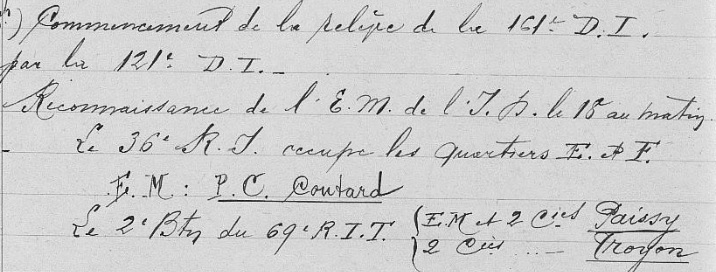 ) Commencement de la relève de la 161e D.I.
par la 121e D.I. _
Reconnaissance de l'E.M. de l'I.D. le 18 au matin.
- Le 36e R.I. occupe les quartiers E. et F.
E.M : P.C. Coutard
Le 2e Btn du 69e R.I.T. { E.M et 2 Cies Paissy
2 Cies .... _ Troyon